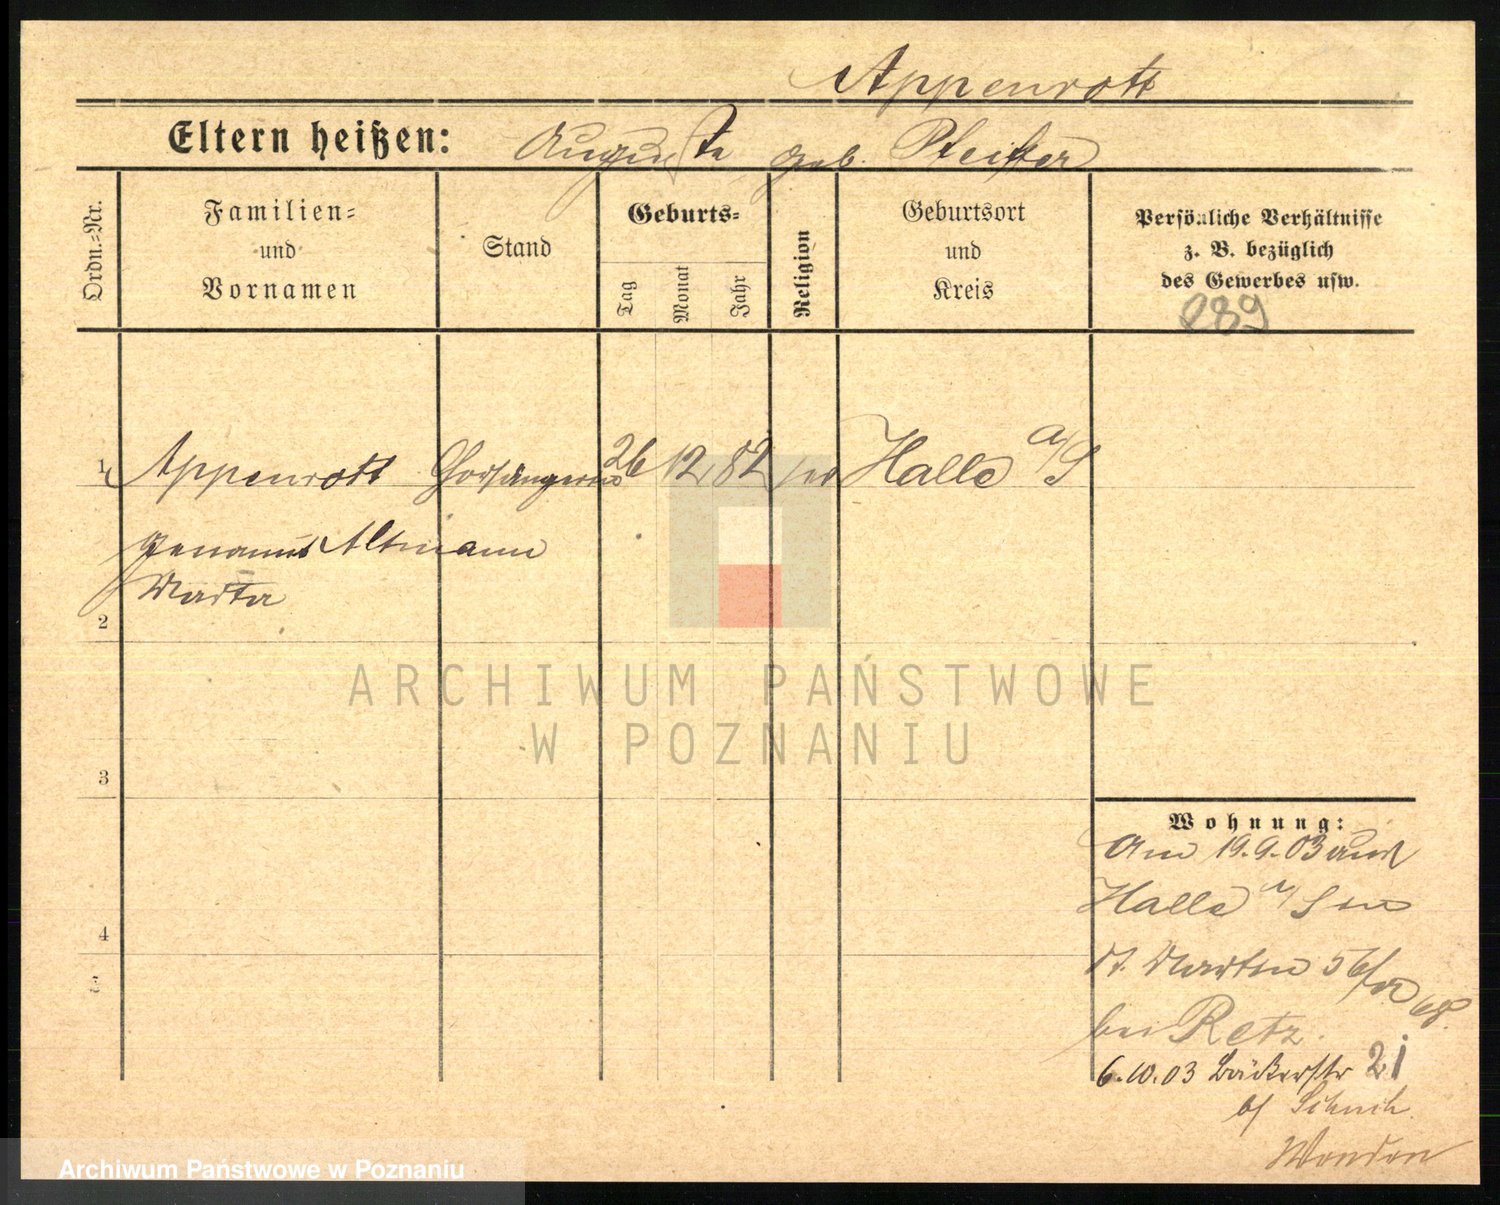 Appenrott
Eltern heißen: Auguste geb. Pfeiffer
Ordn.-Nr.
Familien- und Vornamen
Stand
Geburts-
Tag
Monat
Jahr
Religion
Geburtsort und Kreis
Persönliche Verhältnisse
z. B. bezüglich
des Gewerbes usw.
289
1 Appenrott Chorsängerin 26 12 82 Halle a/S
genannt Altmann
Marta
2
3
4
5
Wohnung:
Am 19.9.03 aus
Halle a/S in
St. Martin 56/
bei Retz.
6.10.03 Bäckerstr 21
b/
ARCHIWUM PAŃSTWOWE
W POZNANIU
Archiwum Państwowe w Poznaniu